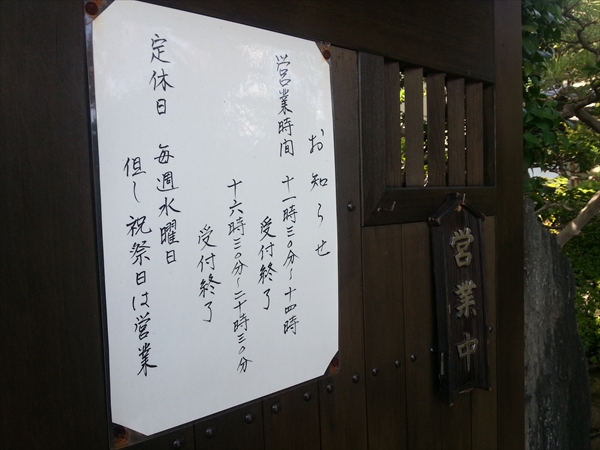 お知らせ
営業時間 十一時三〇分〜十四時
受付終了
十六時三〇分〜二十時三〇分
受付終了
定休日 毎週水曜日
但し祝祭日は営業
営業中